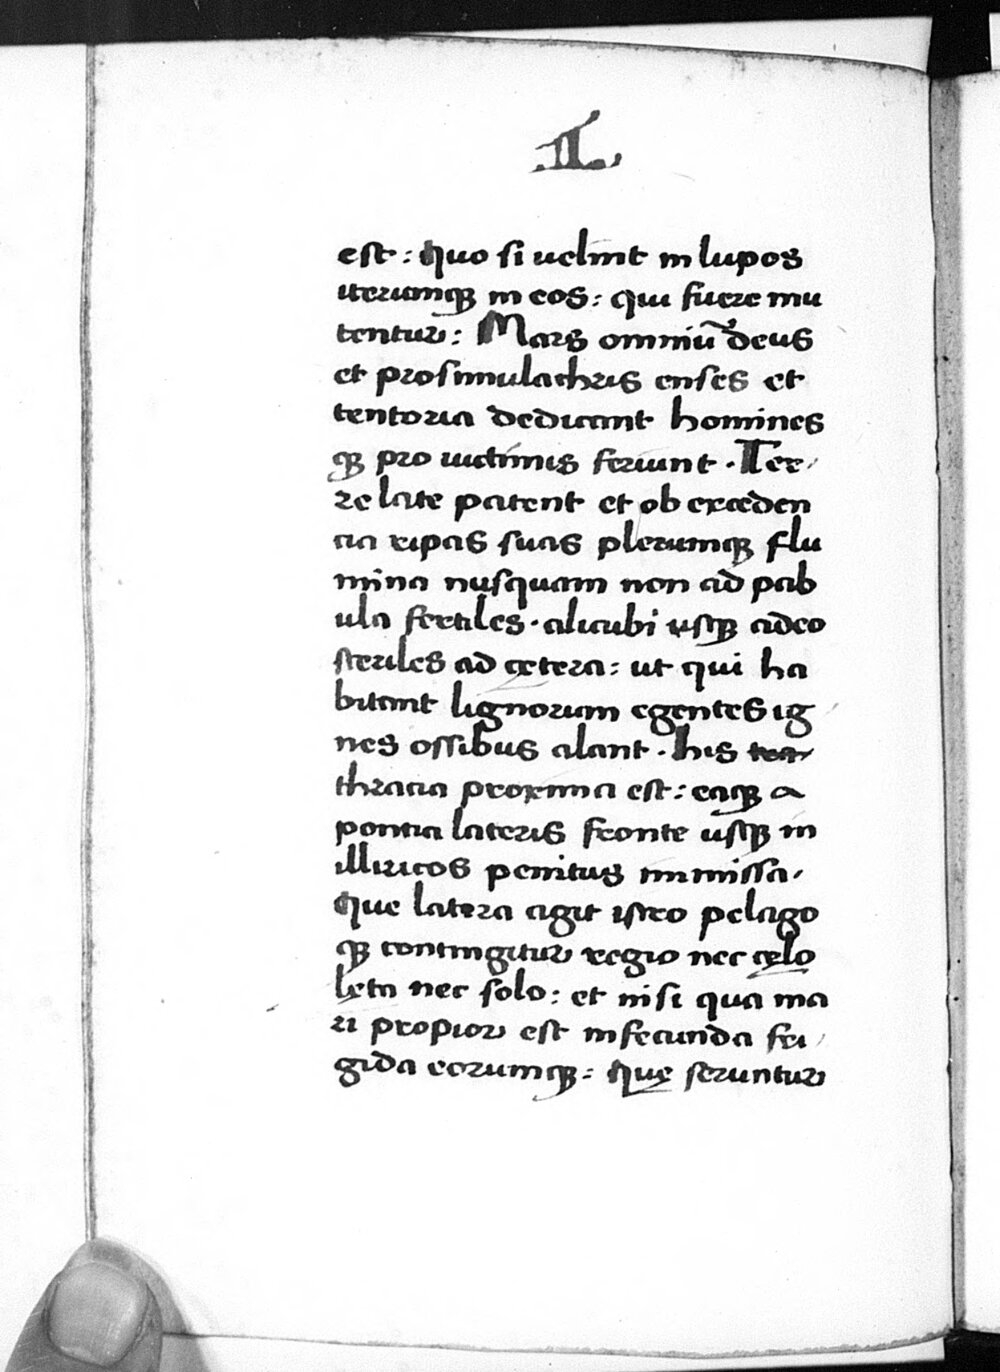 .II.
est: quo si uelint in lupos
iterumqꝫ in eos: qui fuere mu
tentur: Mars omniū deus
et pro simulachris enses et
tentoria dedicant homines
qꝫ pro uictimis feriunt. Ter
re late patent et ob exceden
cia ripas suas plerumqꝫ flu
mina nusquam non ad pab
ula fertiles. alicubi usqꝫ adeo
steriles ad cętera: ut qui ha
bitant lignorum egentes ig
nes ossibus alant. his
thracia proxima est: eaqꝫ a
pontia lateris fronte usqꝫ in
illiricos penitus immissa.
Que latera agit istro pelago
qꝫ contingitur regio nec cęlo
lęta nec solo: et nisi qua ma
ri propior est infecunda fri
gida eorumqꝫ: quę seruntur